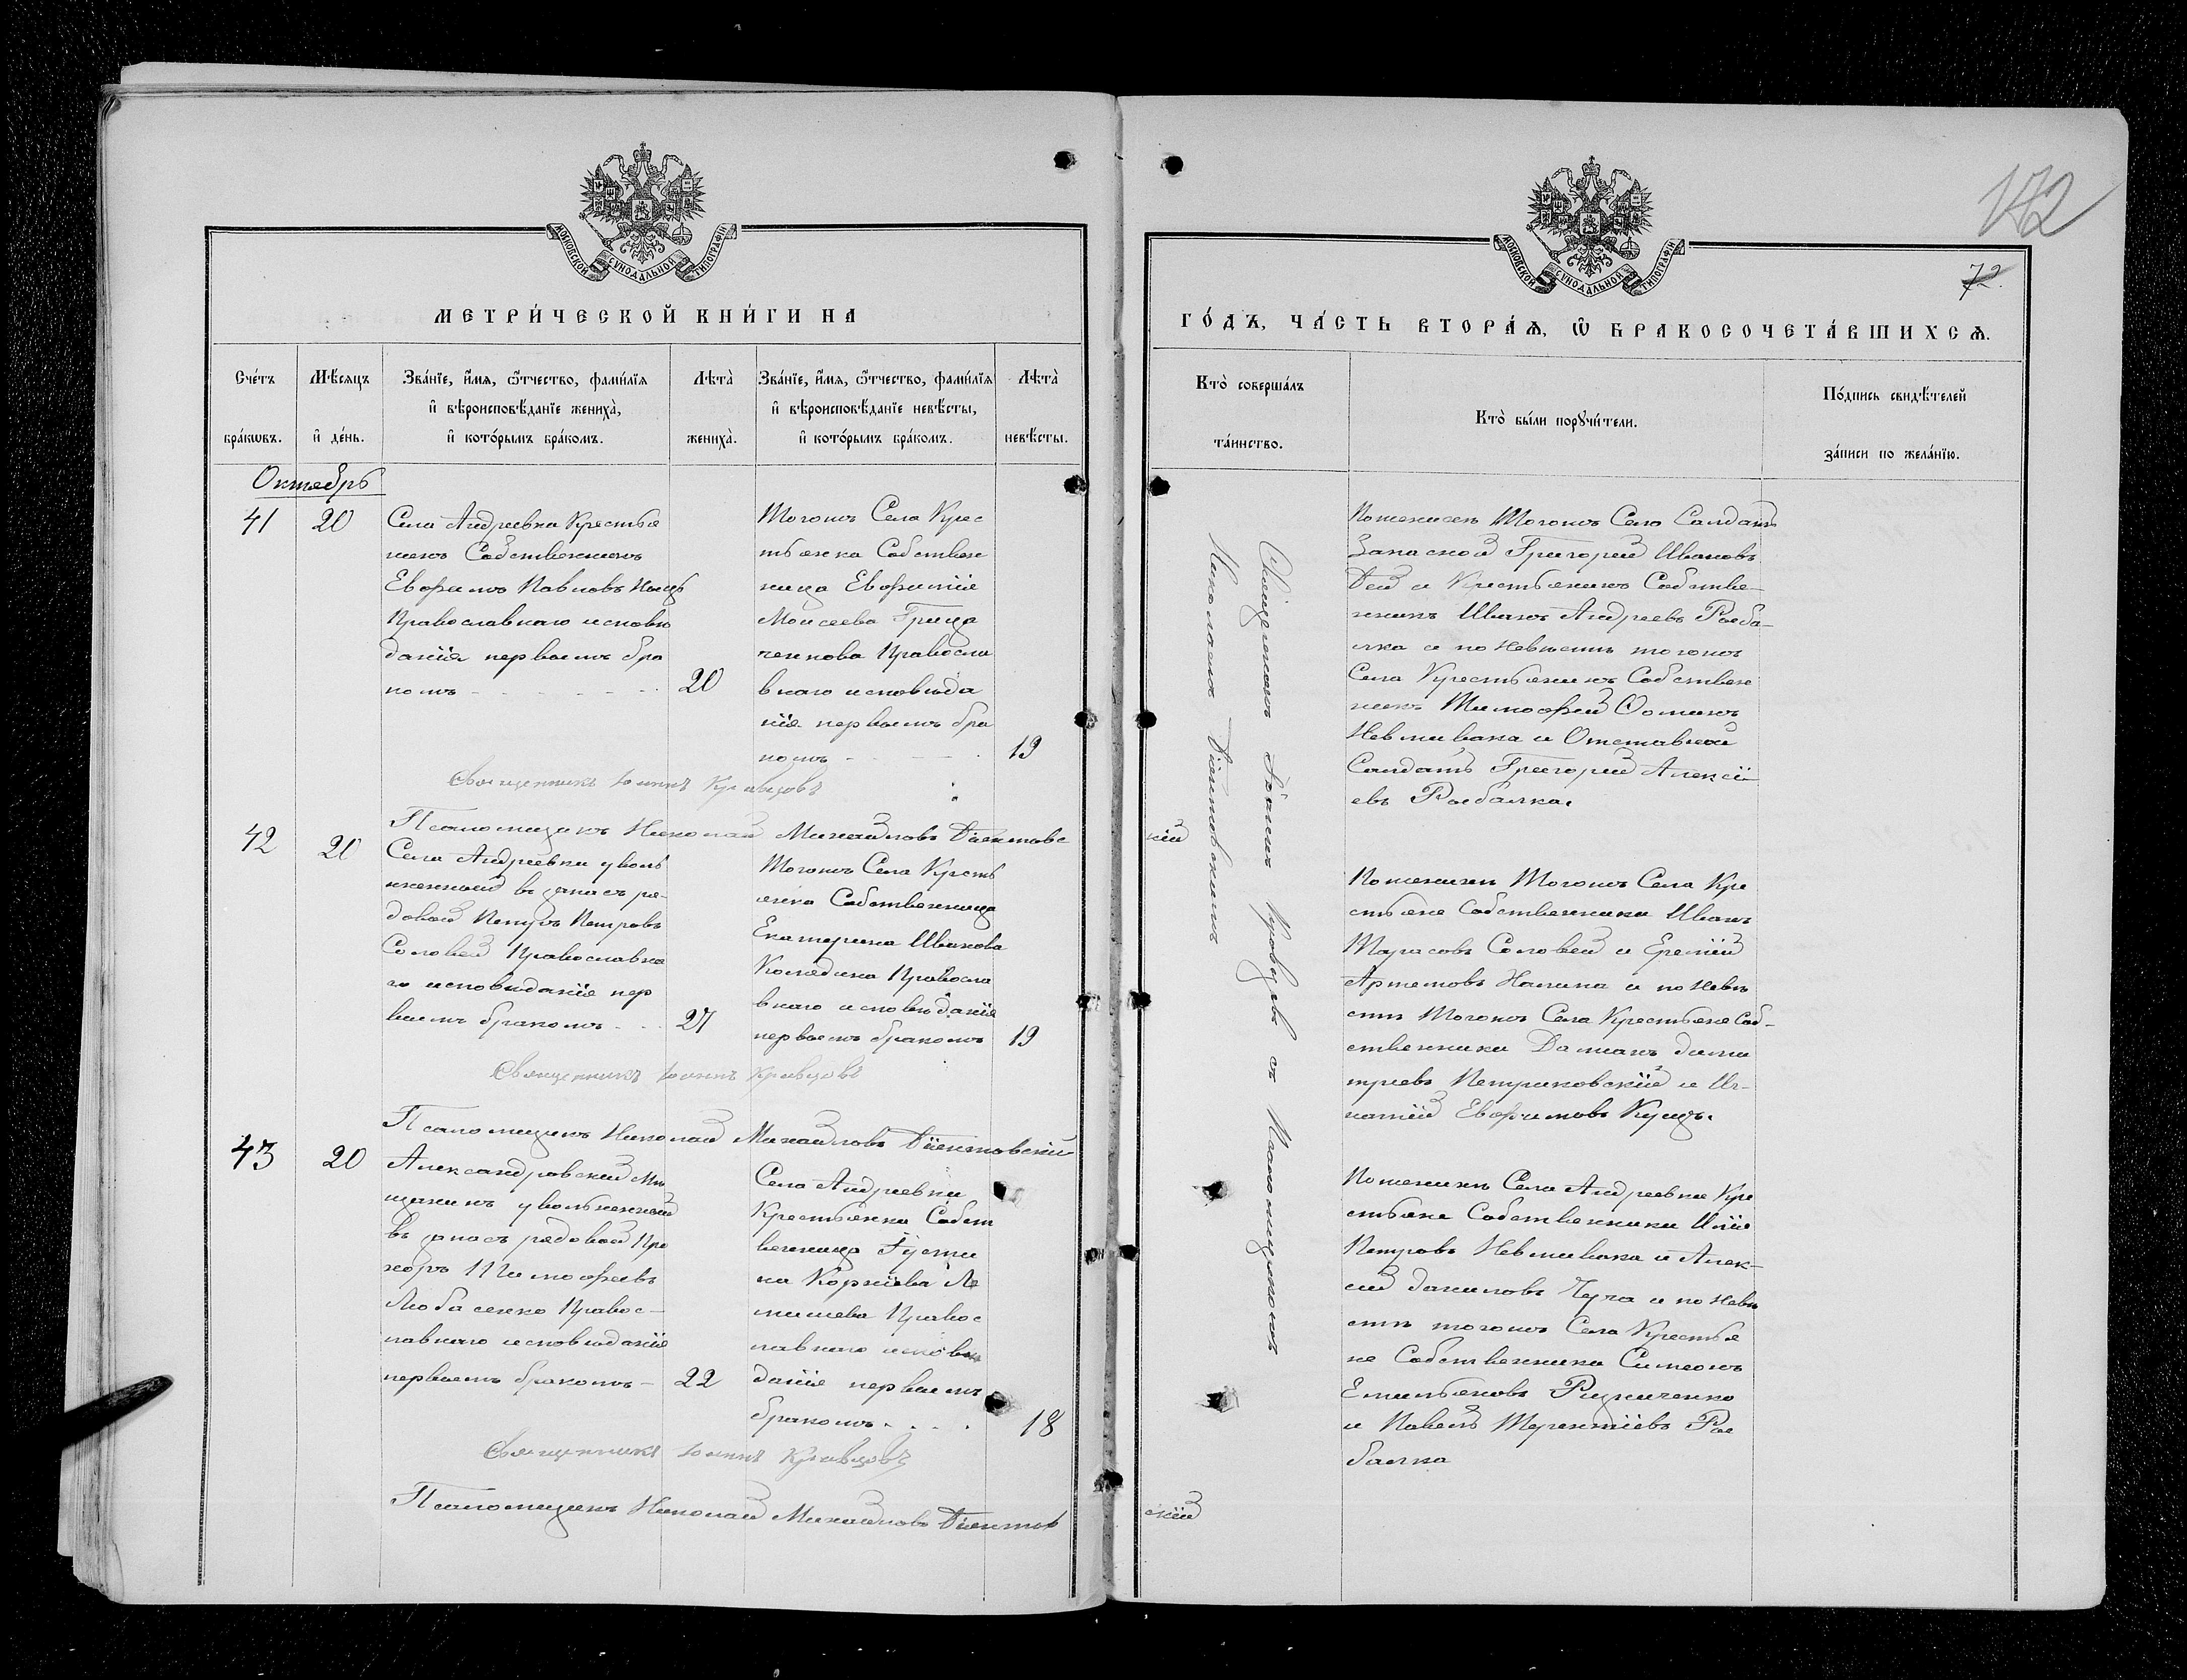 МОСКОВСКОЙ СУНОДАЛЬНОЙ ТИПОГРАФІИ
МЕТРИ́ЧЕСКОЙ КНИ́ГИ НА
Сче́тъ бра́кѡвъ.
Мѣ́сяцъ и҆ де́нь.
Зва́нїе, и҆́мѧ, ѻ҆́тчество, фами́лїѧ и҆ вѣроисповѣ́данїе жениха̀, и҆ кото́рымъ бра́комъ.
Лѣта̀ жениха̀.
Зва́нїе, и҆́мѧ, ѻ҆́тчество, фами́лїѧ и҆ вѣроисповѣ́данїе невѣ́сты, и҆ кото́рымъ бра́комъ.
Лѣта̀ невѣ́сты.
Октябрь
41
20
Села Андреевка Крестья
нинъ Собственникъ
Евфимъ Павловъ
Православнаго исповѣ
данія первымъ бра
комъ
20
Тогожъ Села Крес
тьянка Собствен
ница Евфимія
Моисеева Грица
ченкова Правосла
внаго исповѣда
нія первымъ бра
комъ
19
Священникъ Іоаннъ Кравцовъ
Псаломщикъ Николай Михайловъ Діентовс
42
20
Села Андреевки уволь
ненный въ запасъ ря-
довой Петръ Петровъ
Соловей Православна
го исповѣданія пер
вымъ бракомъ
27
Тогожъ Села Кресть
янка Собственница
Екатерина Иванова
Колядина Правосла
внаго исповѣданія
первымъ бракомъ
19
Священникъ Іоаннъ Кравцовъ
Псаломщикъ Николай Михайловъ Діентовскій
43
20
Александровскій Мѣ
щанинъ уволненный
въ запасъ рядовой Про
хоръ Тимофеевъ
Любасенко Правос-
лавнаго исповѣданія
первымъ бракомъ
22
Села Андреевки
Крестьянка Собст
венница Густи
на Корніева Ле
мишева Правос
лавнаго исповѣ
данія первымъ
бракомъ
18
Священникъ Іоаннъ Кравцовъ
Псаломщикъ Николай Михайловъ Діентов
172
72.
МОСКОВСКОЙ СУНОДАЛЬНОЙ ТИПОГРАФІИ
ГО́ДЪ, ЧА́СТЬ ВТОРА́Я, Ѡ҆ БРАКОСОЧЕТА́ВШИХСѦ.
Кто̀ соверша́лъ та́инство.
Кто̀ бы́ли порꙋчи́тели.
По́дпись свидѣ́телей за́писи по жела́нїю.
Священникъ Іоаннъ Кравцовъ съ Псаломщикомъ
Николаемъ Діентовскимъ
По женихѣ Тогожъ Села Салдатъ
Запаской Григорій Ивановъ
Дей и Крестьянинъ Собстве-
нникъ Иванъ Андреевъ Рыба-
лка и по Невѣстѣ тогожъ
Села Крестьянинъ Собствен
никъ Тимофей Фоминъ
Невмивака и Отставной
Салдатъ Григорій Алексѣ
евъ Рыбалка.
кій
По женихѣ Тогожъ Села Кре
стьяне Собственники Иванъ
Тарасовъ Соловей и Еремій
Артемовъ Налина и по Невѣ
стѣ Тогожъ Села Крестьяне Соб-
ственники Даміанъ Дими
тріевъ Петриковскій и Иг-
натій Евфимовъ Куцъ.
По женихѣ Села Андреевки Кре
стьяне Собственники Илія
Петровъ Невмивака и Алек-
сій Даниловъ Чуга и по Невѣ
стѣ тогожъ Села Крестья
не Собственники Симеонъ
Емильяновъ Ризниченко
и Павелъ Терентіевъ Ры
балка
скій